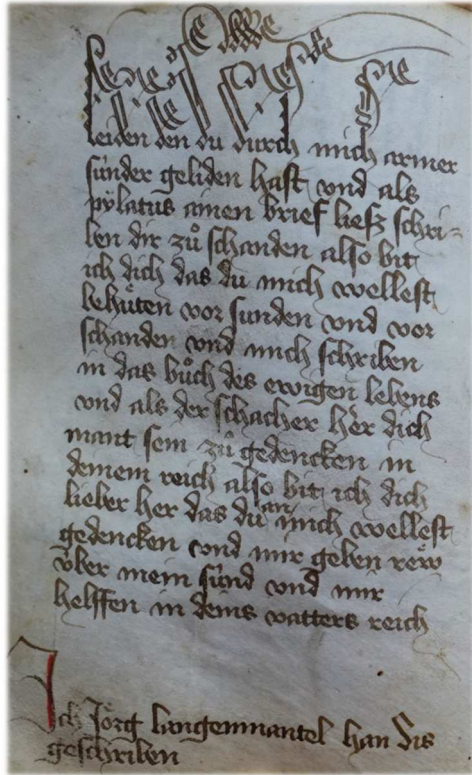 leiden den du durch mich armer
sünder geliden hast vnd als
pÿlatus ainen brief liesz schri-
ben dir zů schanden also bit
ich dich das du mich wellest
behüten vor sunden vnd vor
schanden vnd mich schriben
in das bůch des ewigen lebens
vnd als der schacher her dich
mant sein zů gedencken in
deinem reich also bit ich dich
lieber her das du an mich wellest
gedencken vnd mir geben rew
über mein sünd vnd mir
helffen in deins vatters reich
Ich Jörg langenmantel han dis
geschriben